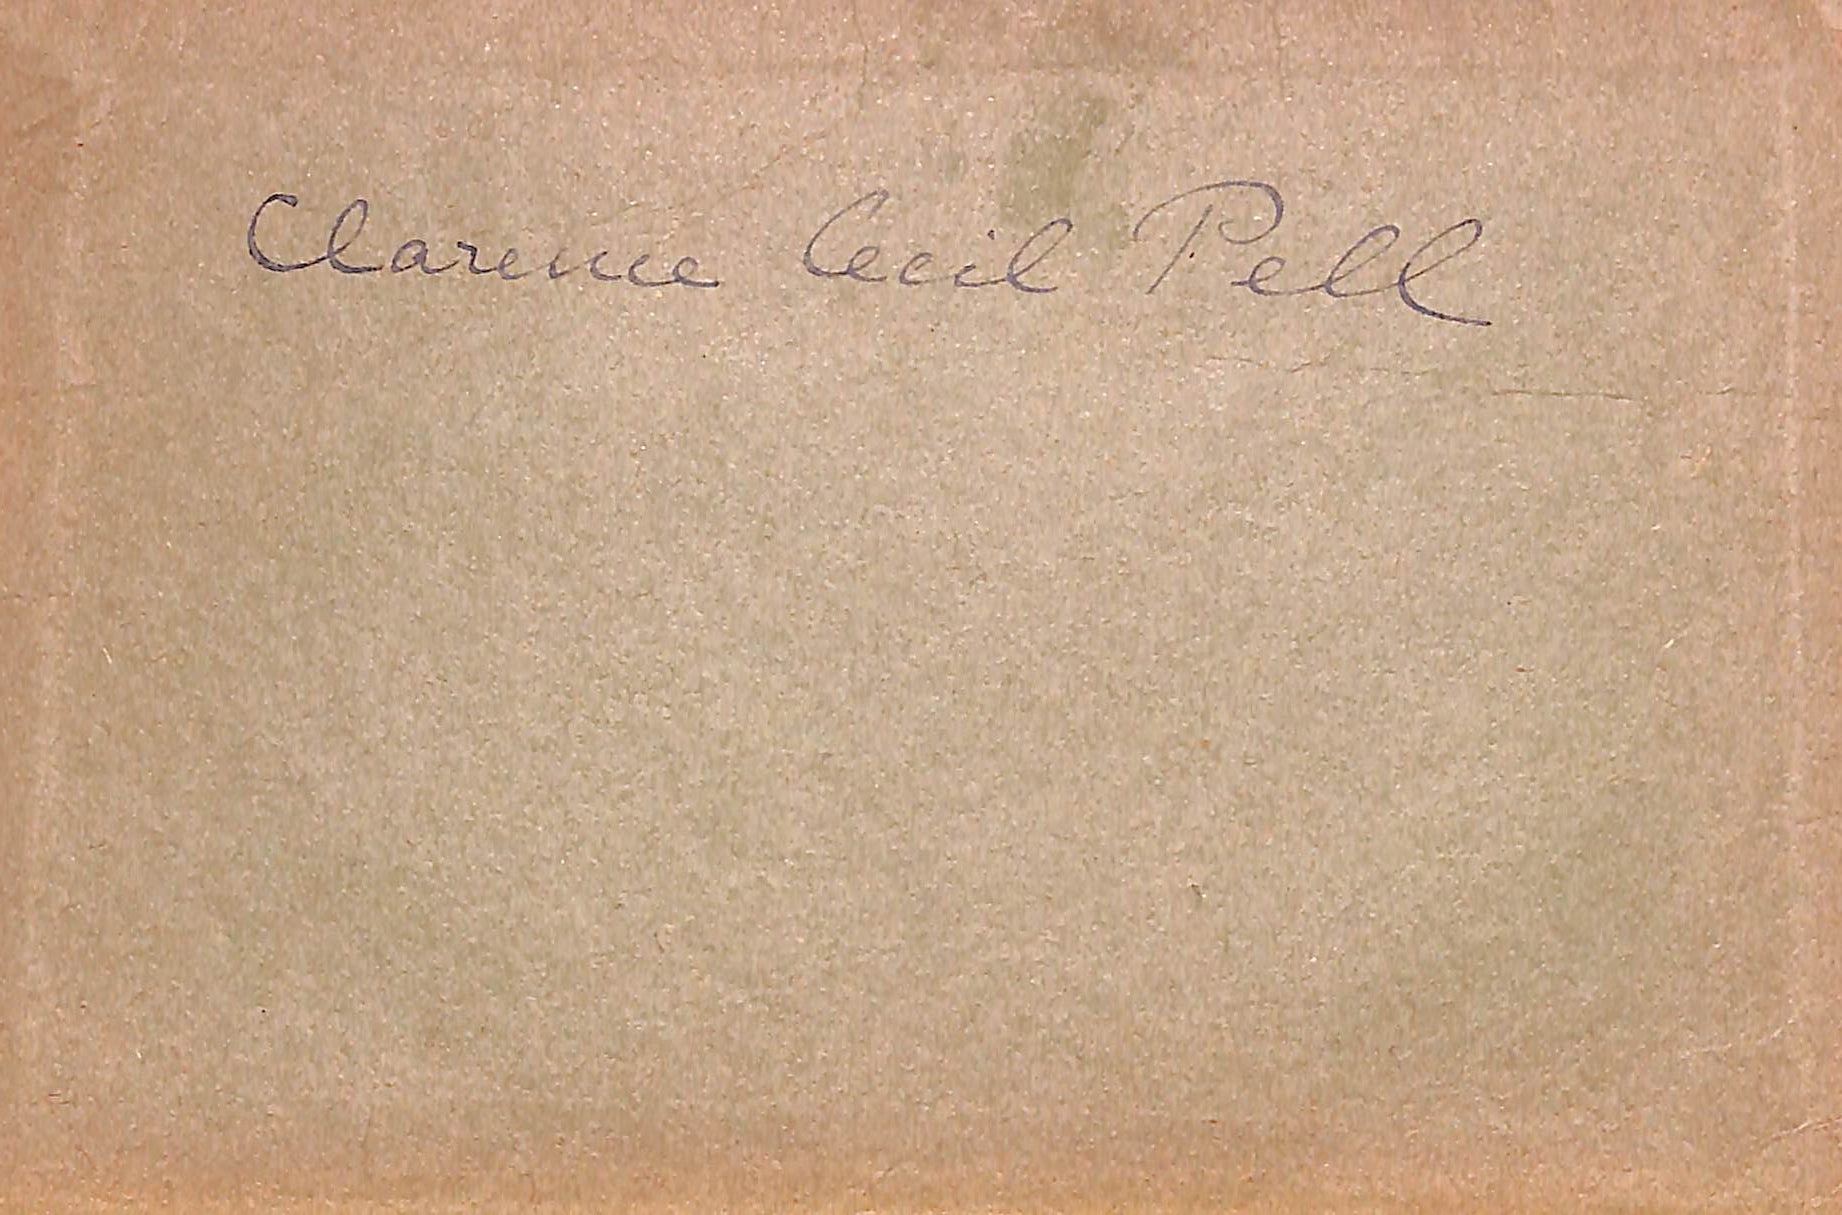 Clarence Cecil Pell